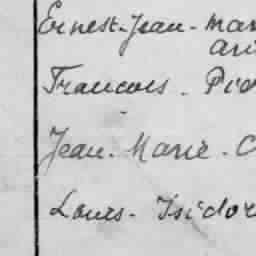 Ernest-Jean-Mar
Ari
Francois. Pie
Jean-Marie-C
Louis-Isidor